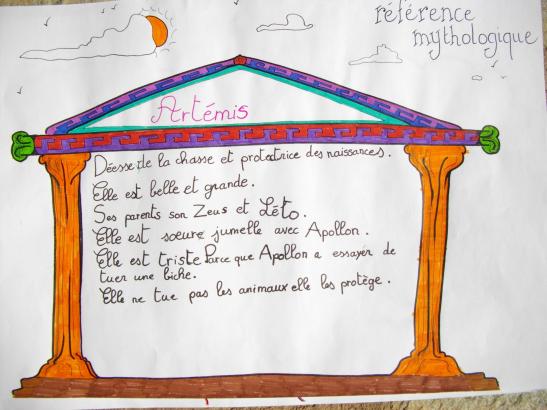 référence
mythologique
Artémis
Déesse de la chasse et protectrice des naissances.
Elle est belle et grande.
Ses parents son Zeus et Léto.
Elle est sœure jumelle avec Apollon.
Elle est triste Parce que Apollon a essayer de
tuer une biche.
Elle ne tue pas les animaux elle les protège.